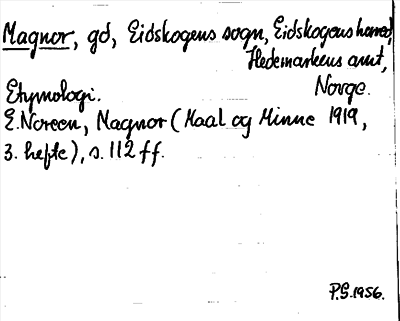 Magnor, gd, Eidskogens sogn, Eidskogens herred,
Hedemarkens amt,
Norge.
Etymologi.
E. Noreen, Magnor (Maal og Minne 1919,
3. hefte), s. 112 ff.
P.S. 1956.